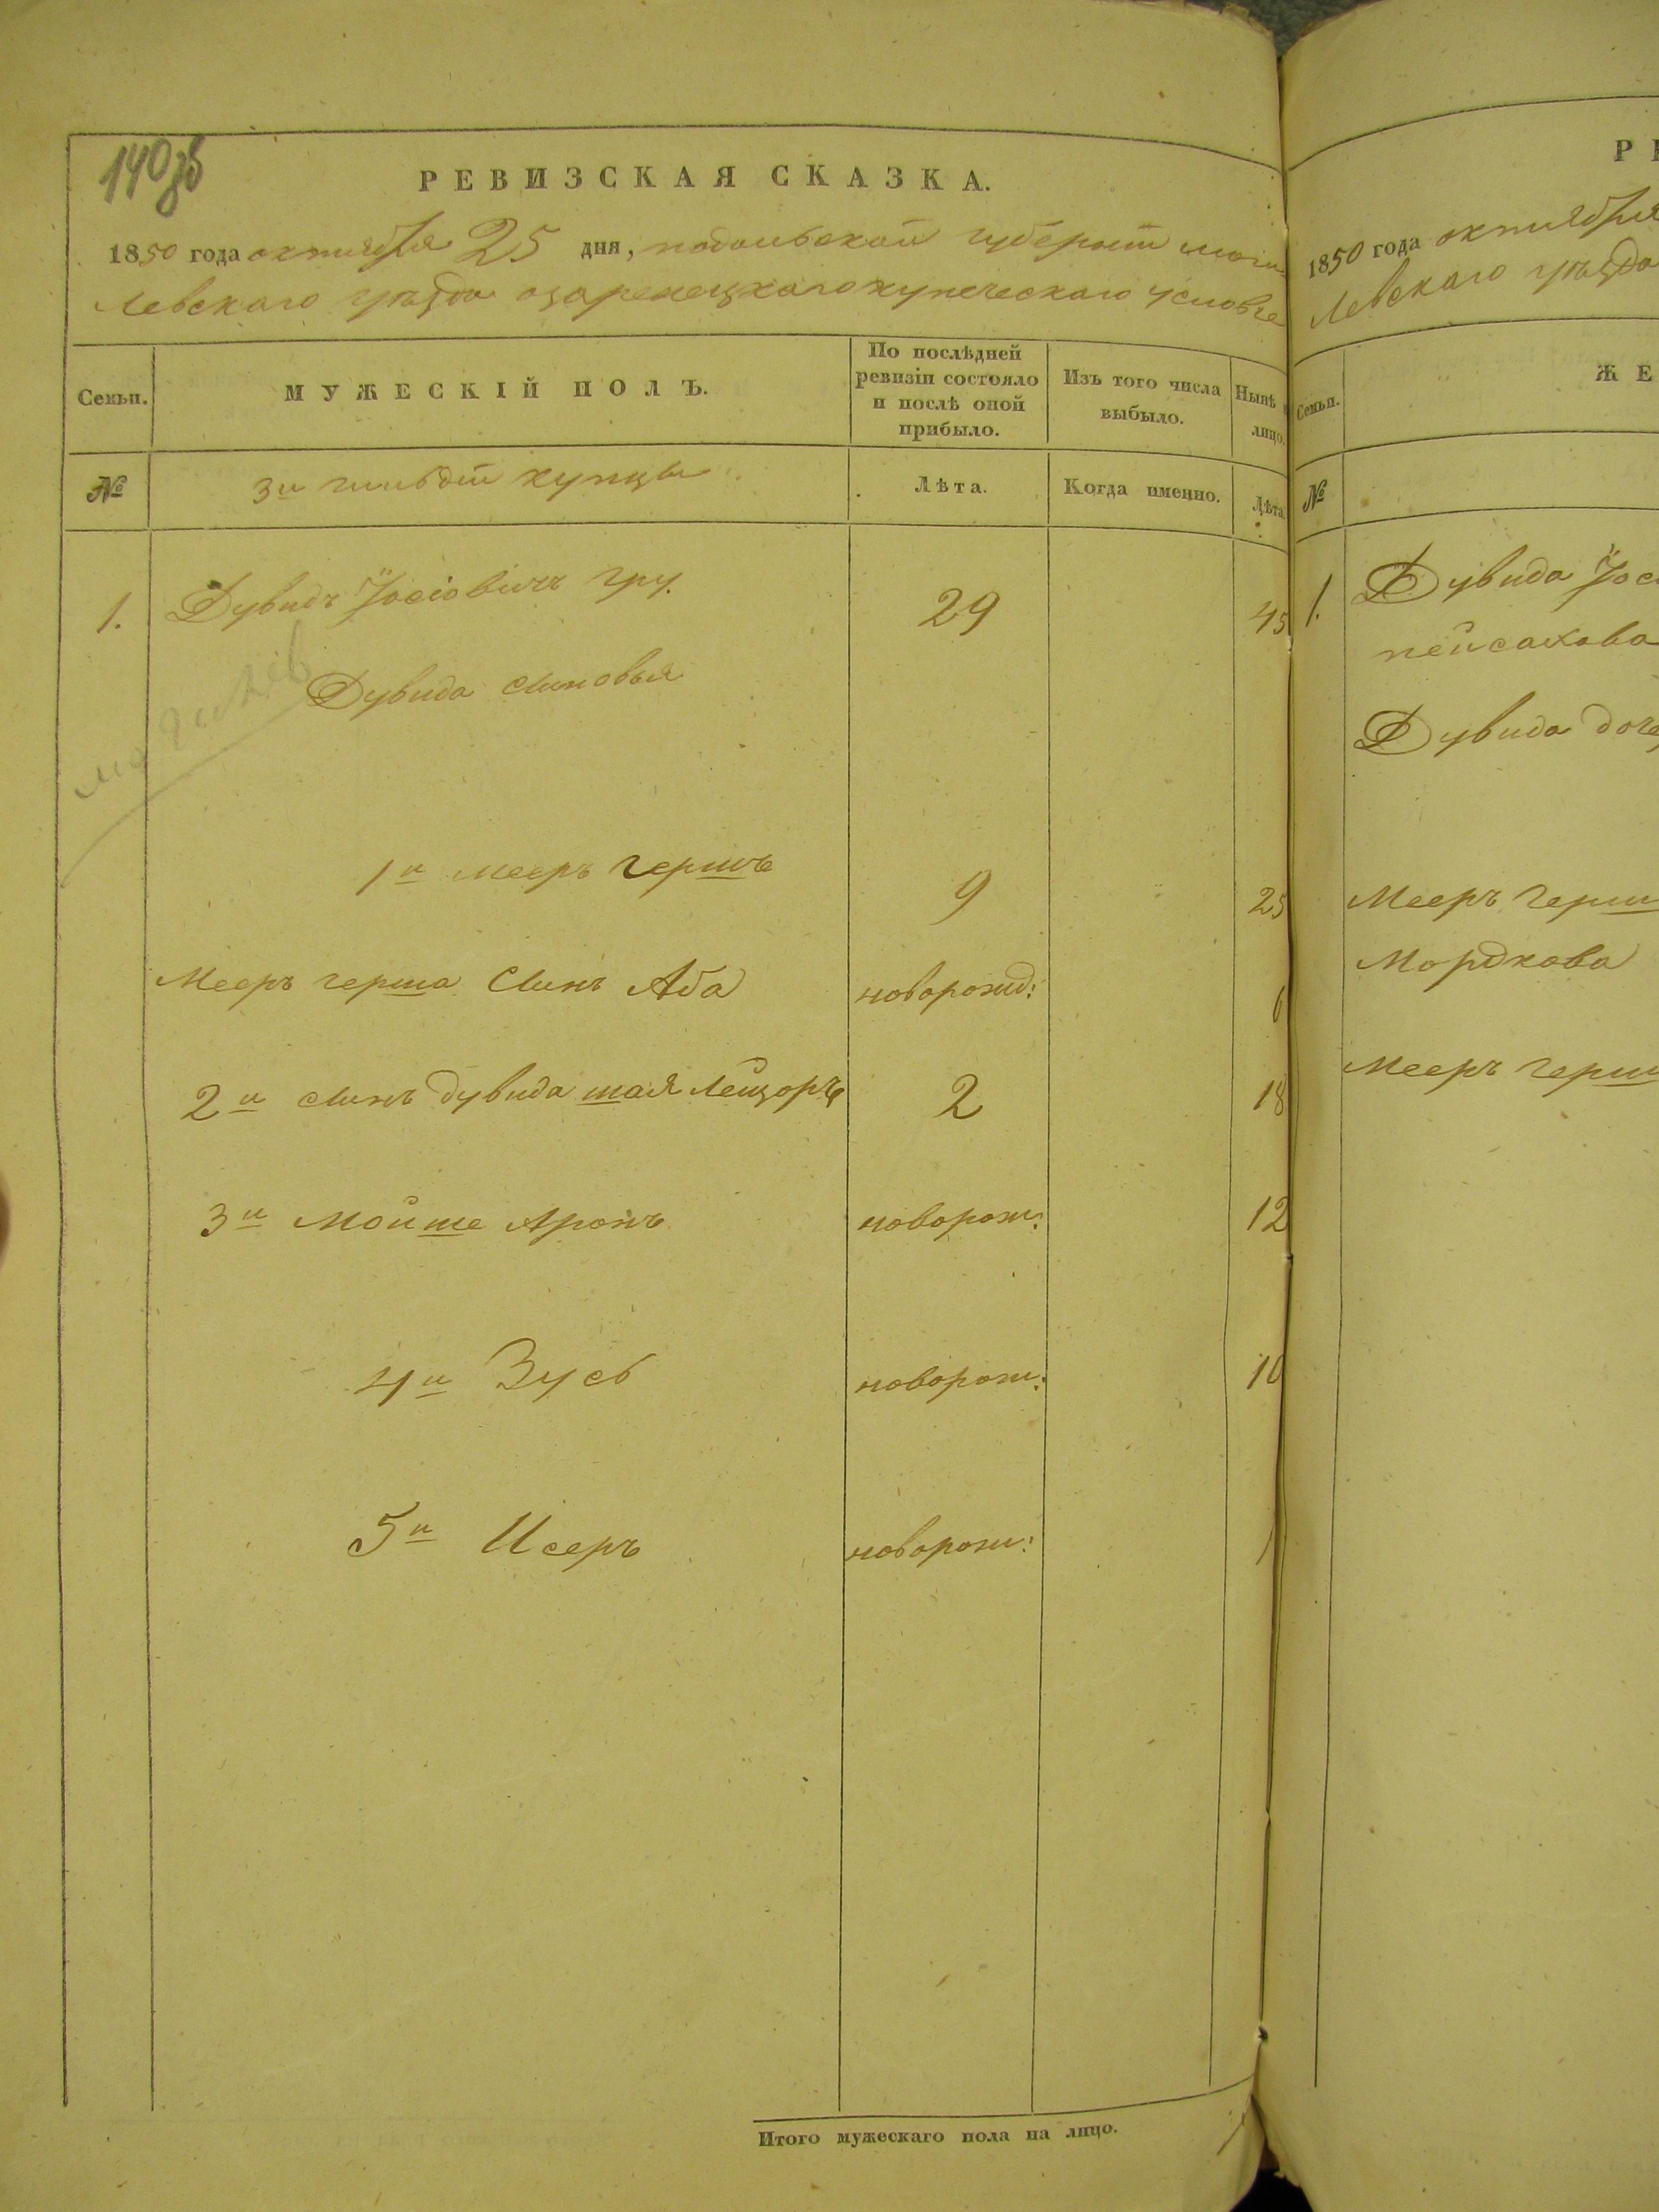 140об
РЕВИЗСКАЯ СКАЗКА.
1850 года октября 25 дня, подольской губернии моги
левскаго уезда озаренецкаго купеческаго
Семьи.
МУЖЕСКІЙ ПОЛЪ.
По послѣдней
ревизіи состояло
и послѣ оной
прибыло.
Изъ того числа
выбыло.
Нынѣ
лицо.
№
3й гильдіи купцы
Лѣта.
Когда именно.
Лѣта.
1. Дувидъ Іосіовичъ Гру. 29 45
Дувида сыновья
1й Мееръ Гершъ 9 25
Мееръ герша Сынъ Аба новорожд: 6
2й сынъ Дувида шая Лейзоръ 2 18
3й Мойше Аронъ новорож: 12
4й Зусь новорож: 10
5й Исеръ новорож: 1
Итого мужескаго пола на лицо.
1850 года октября
левскаго уезда
Семьи.
ЖЕ
№
1. Дувида Іос
пейсахова
Дувида доче
Мееръ Герш
Мордкова
Мееръ герш